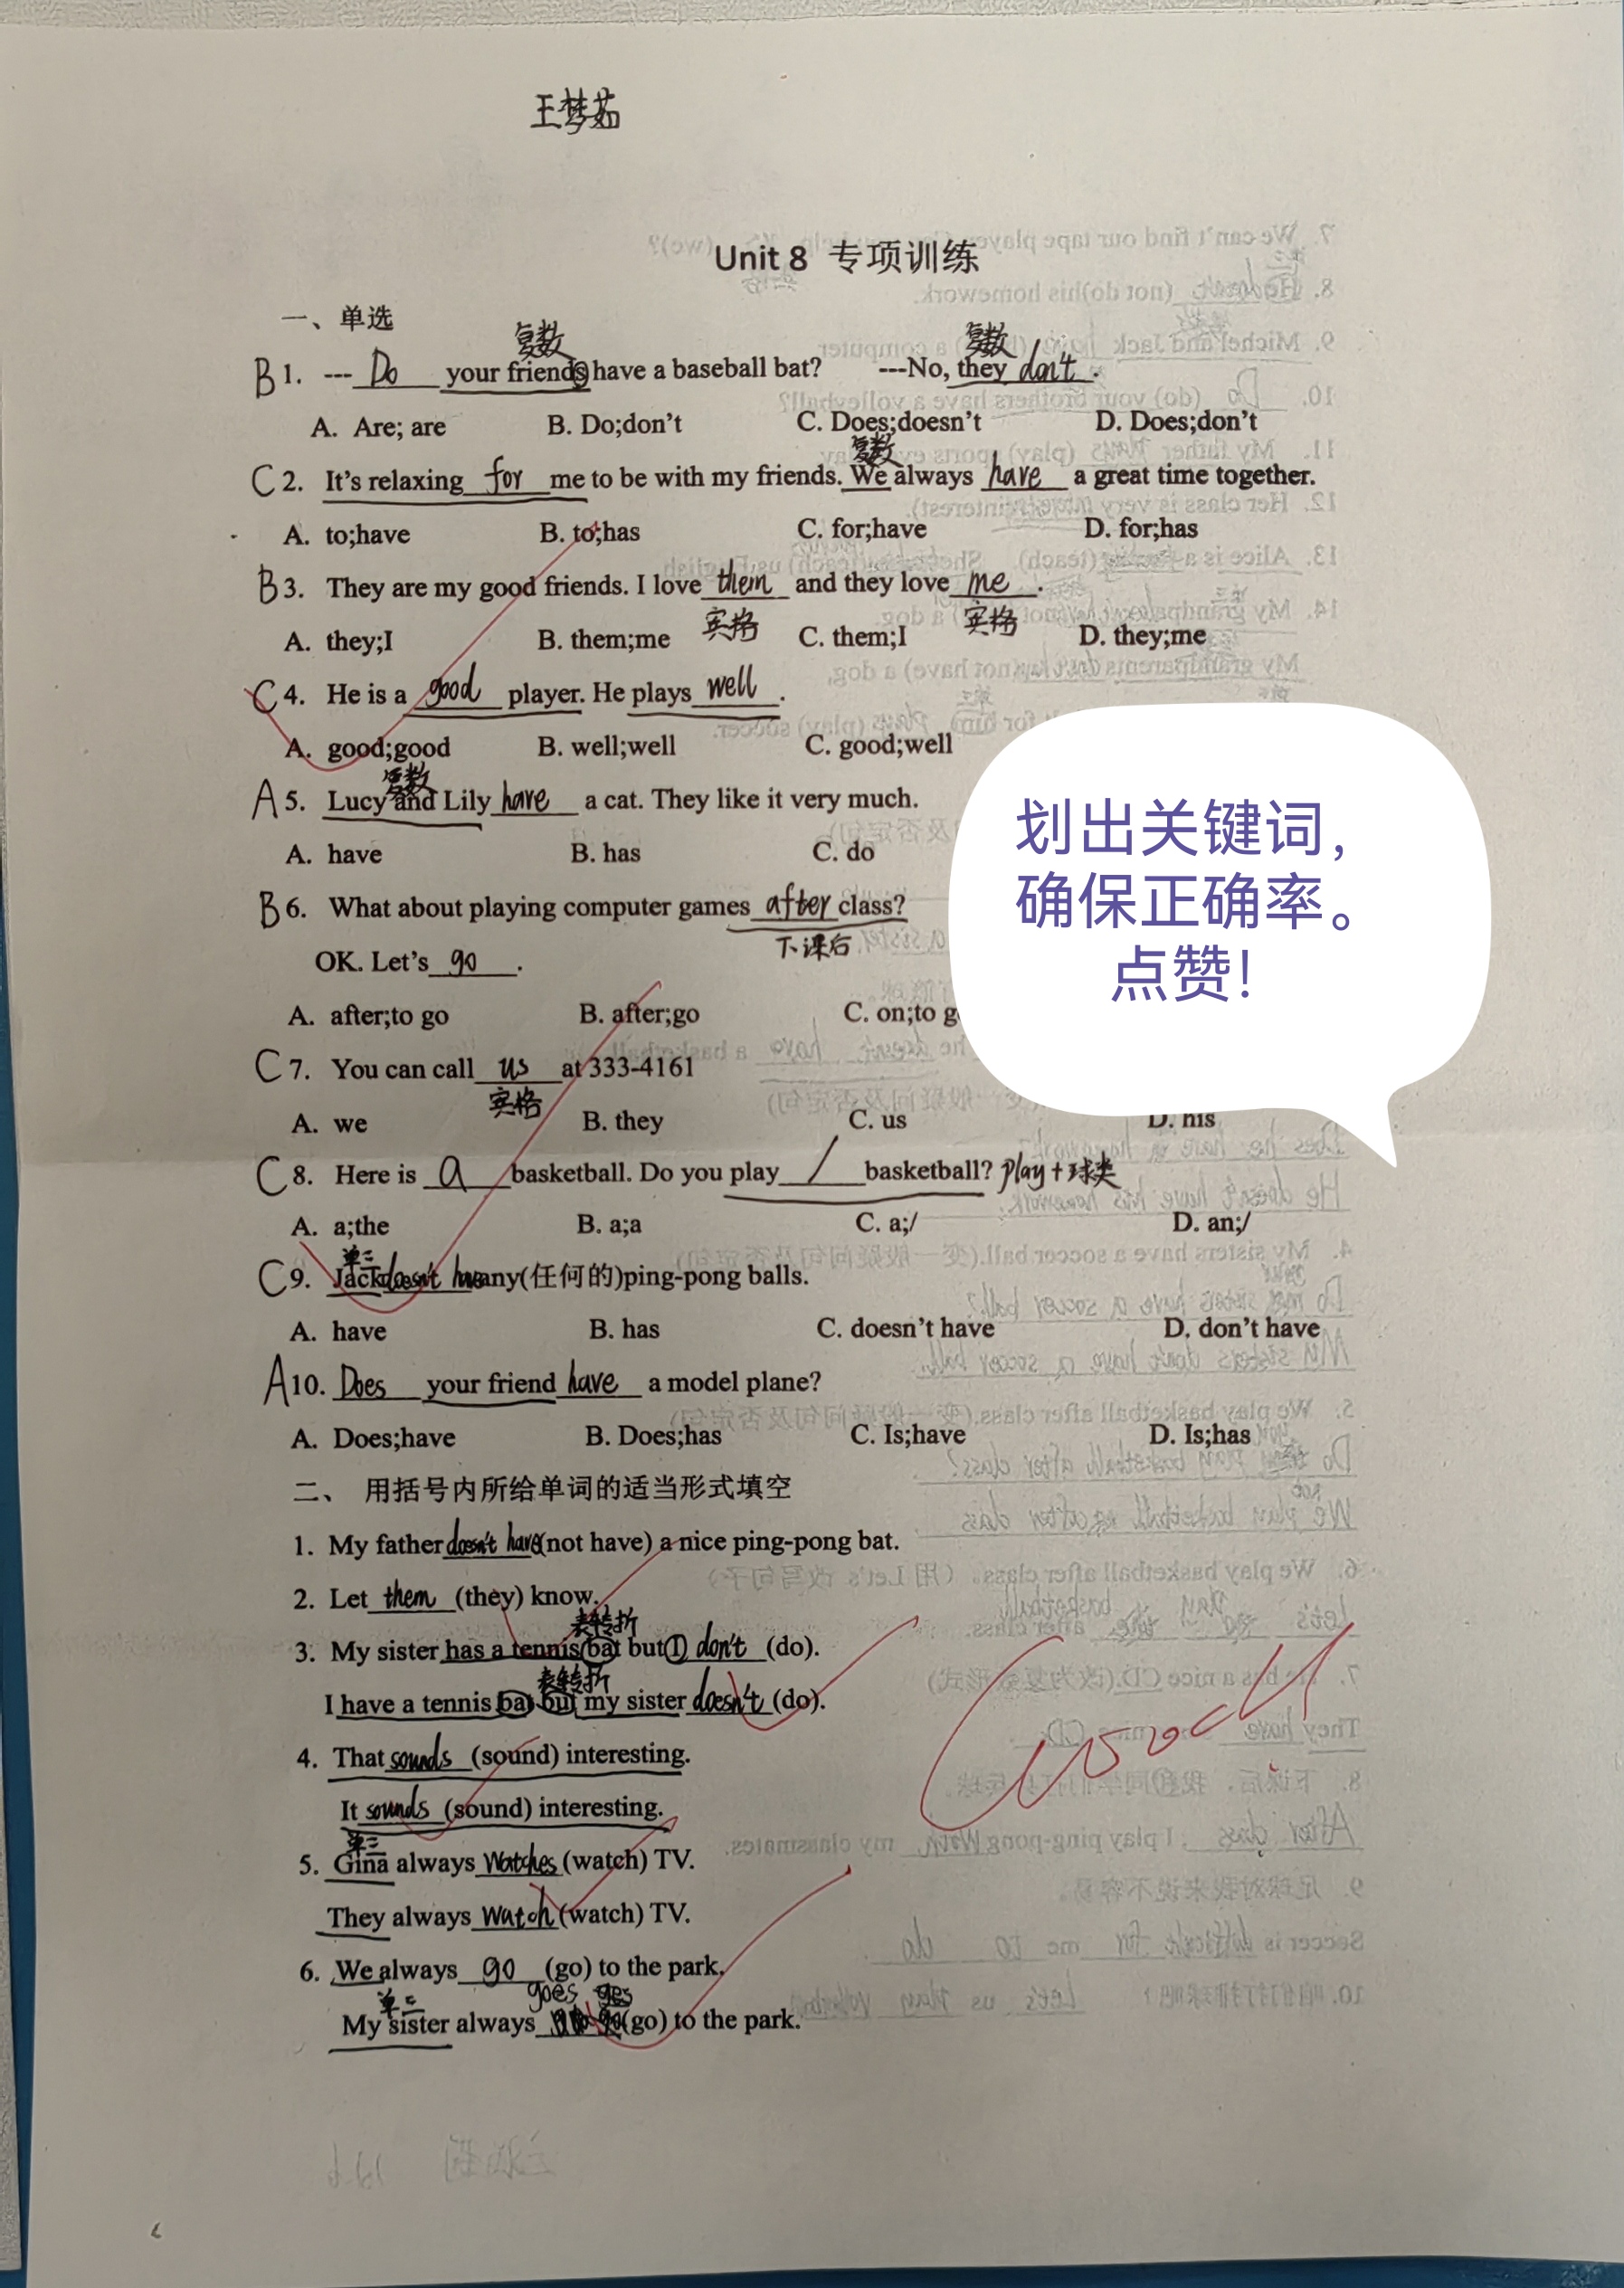 王梦茹
Unit 8 专项训练
一、单选
复数 复数
B 1. --- Do your friends have a baseball bat? ---No, they don't.
A. Are; are B. Do;don't C. Does;doesn't D. Does;don't
复数
C 2. It's relaxing for me to be with my friends. We always have a great time together.
A. to;have B. to;has C. for;have D. for;has
B 3. They are my good friends. I love them and they love me.
宾格 宾格
A. they;I B. them;me C. them;I D. they;me
C 4. He is a good player. He plays well.
A. good;good B. well;well C. good;well
复数
A 5. Lucy and Lily have a cat. They like it very much.
A. have B. has C. do
B 6. What about playing computer games after class?
下课后
OK. Let's go.
A. after;to go B. after;go C. on;to g
C 7. You can call us at 333-4161
宾格
A. we B. they C. us D. his
C 8. Here is a basketball. Do you play / basketball? play+球类
A. a;the B. a;a C. a;/ D. an;/
单三
C 9. Jack doesn't have any(任何的)ping-pong balls.
A. have B. has C. doesn't have D. don't have
A 10. Does your friend have a model plane?
A. Does;have B. Does;has C. Is;have D. Is;has
二、 用括号内所给单词的适当形式填空
1. My father doesn't have (not have) a nice ping-pong bat.
2. Let them (they) know.
表转折
3. My sister has a tennis bat but I don't (do).
表转折
I have a tennis bat but my sister doesn't (do).
4. That sounds (sound) interesting.
It sounds (sound) interesting.
单三
5. Gina always watches (watch) TV.
They always watch (watch) TV.
6. We always go (go) to the park.
单三 goes
My sister always (go) to the park.
Good!
划出关键词，
确保正确率。
点赞！